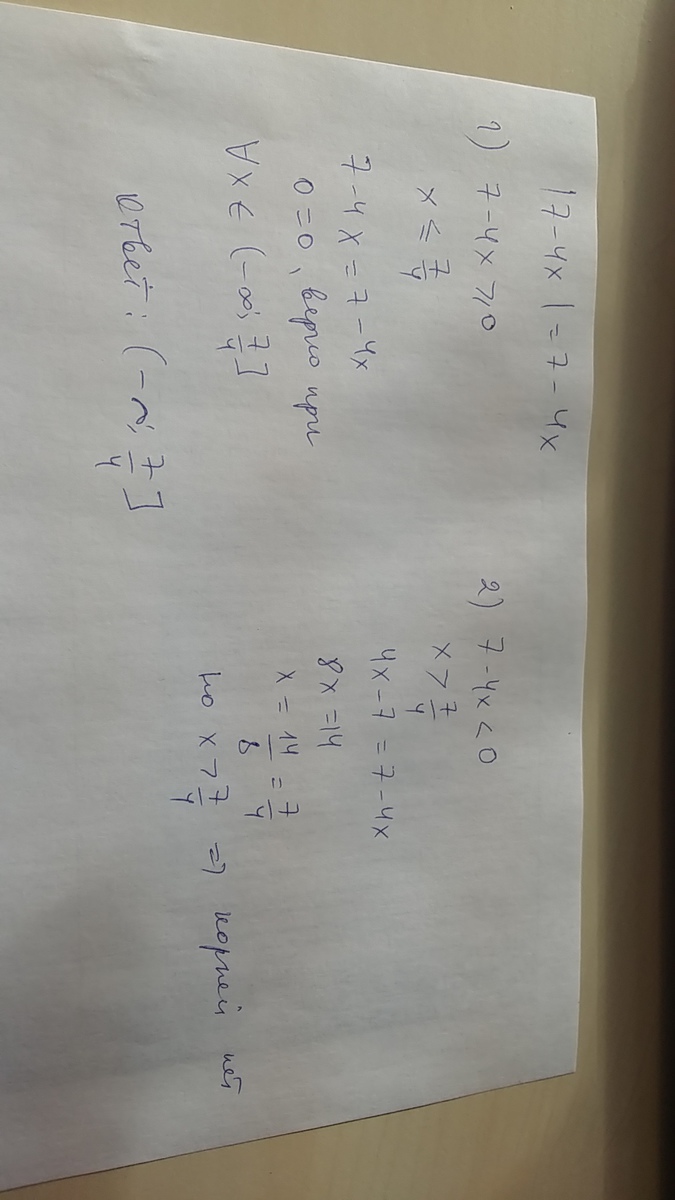 |7-4x| = 7-4x
1) 7-4x ≥ 0
x ≤ 7/4
7-4x = 7-4x
0=0, верно при
∀x ∈ (-∞; 7/4]
Ответ: (-∞; 7/4]
2) 7-4x < 0
x > 7/4
4x-7 = 7-4x
8x = 14
x = 14/8 = 7/4
но x > 7/4 ⇒ корней нет